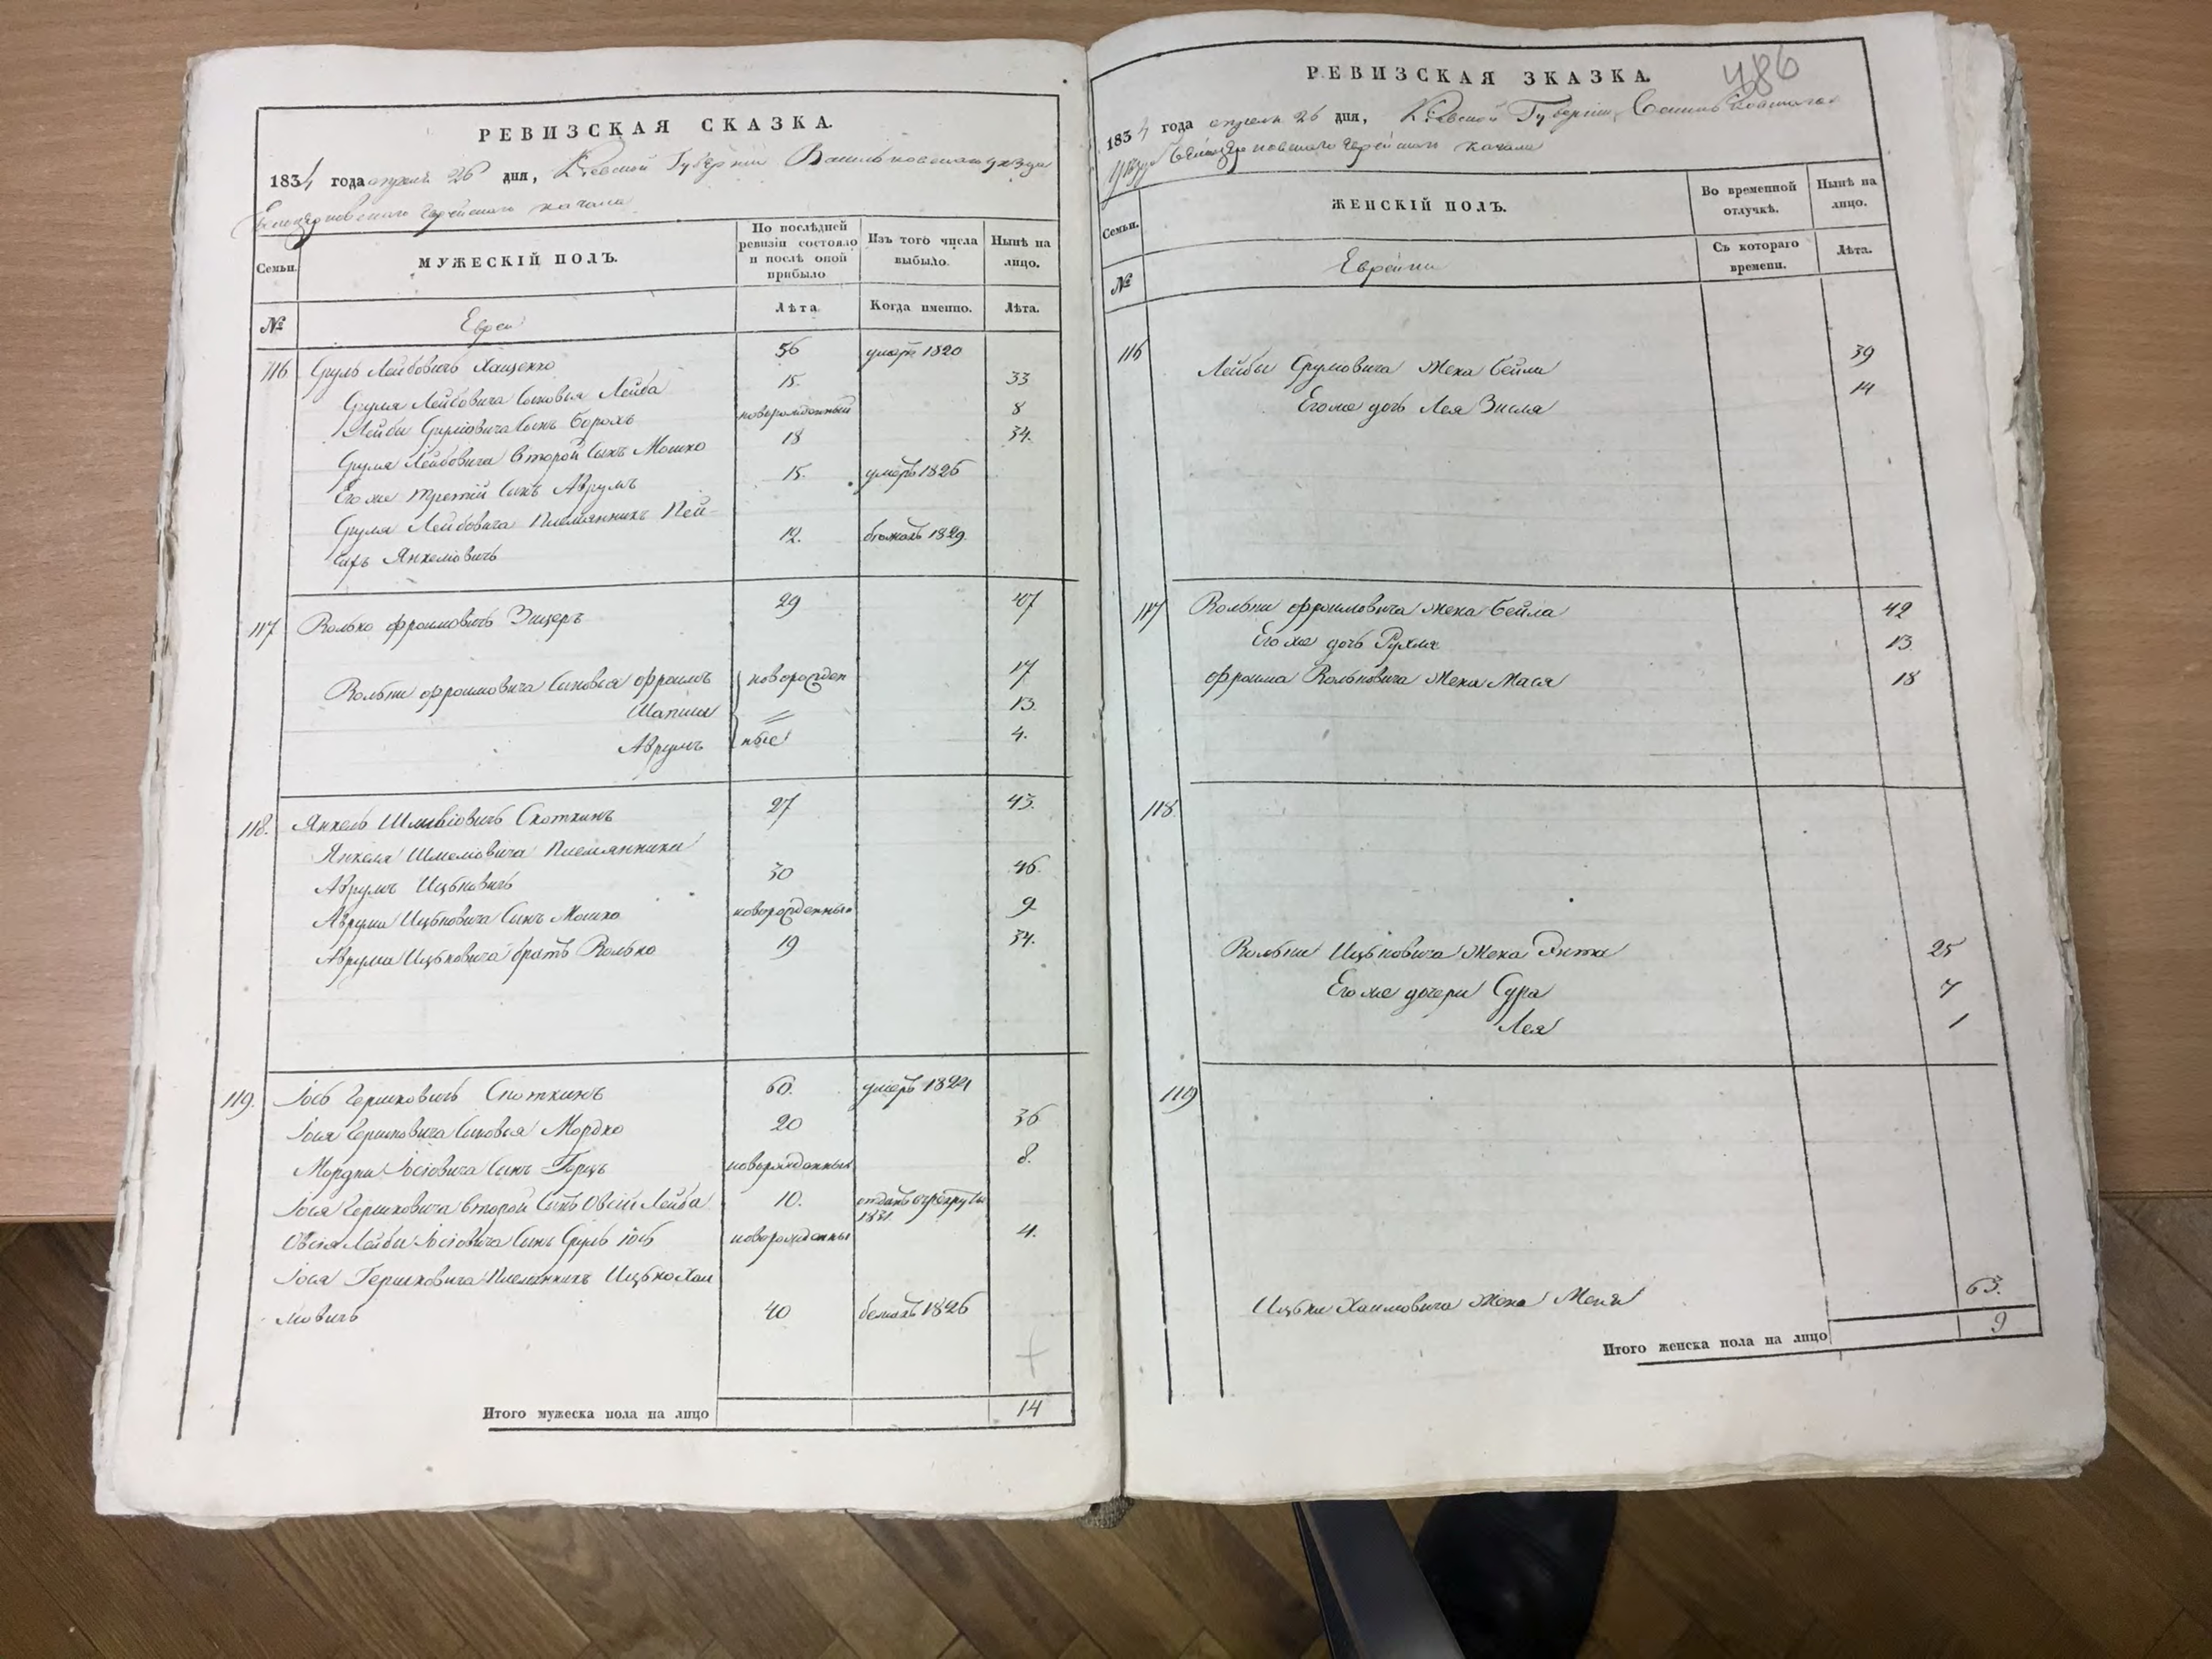 РЕВИЗСКАЯ СКАЗКА.
1834 года апреля 26 дня, Киевской Губернии Васильковского уезда
Белоцерковского Еврейского кагала
Семьи.
МУЖЕСКІЙ ПОЛЪ.
По послѣдней ревизіи состояло и послѣ оной прибыло
Изъ того числа выбыло.
Нынѣ на лицо.
№
Евреи
Лѣта
Когда именно.
Лѣта.
116 Сруль Лейбовичъ Хащенко 56 умеръ 1820
Сруля Лейбовича Сыновья Лейба 15. 33
Лейбы Срулiовича Сынъ Борохъ новорожденный 8
Сруля Лейбовича Второй Сынъ Мошко 18 34.
Его же третій Сынъ Аврумъ 15. умеръ 1826
Сруля Лейбовича Племянникъ Пей-
сахъ Янкелiовичъ 12. бежалъ 1829
117 Волько Фроимовичъ 29 47
Вольки Фроимовича Сыновья Фроимъ новорожден 17
Шапшл 13.
Аврумъ ные 4.
118. Янкель Шмулiовичъ Скоткинъ 27 43.
Янкеля Шмулiовича Племянники
Аврумъ Ицьковичъ 30 46.
Аврума Ицьковича Сынъ Мошко новорожденный 9
Аврума Ицьковича братъ Волько 19 34.
119. Іось Гершковичъ Скоткинъ 60. умеръ 1824
Іося Гершковича Сыновья Мордко 20 36
Мордки Іосiовича Сынъ Герцъ новорожденный 8.
Іося Гершковича Второй Сынъ Овсій Лейба 10. отданъ в рекруты 1831
Овсія Лейбы Іосiовича Сынъ Сруль Іось новорожденны 4.
Іося Гершковича Племянникъ Ицько Хаи
мовичъ 40 бежалъ 1826
Итого мужеска пола на лицо 14
486
РЕВИЗСКАЯ ЗКАЗКА.
1834 года апреля 26 дня, Киевской Губернии Васильковского
уезда Белоцерковского Еврейского кагала
Семьи.
ЖЕНСКІЙ ПОЛЪ.
Во временной отлучкѣ.
Нынѣ на лицо.
№
Еврейки
Съ котораго времени.
Лѣта.
116 Лейбы Срулiовича Жена Бейла 39
Его же дочь Лея Зисля 14
117 Вольки Фроимовича жена Бейла 42
Его же дочь Рухля 13
Фроима Вольковича Жена Мася 18
118.
Вольки Ицьковича Жена Энта 25
Его же дочери Сура 7
Лея 1
119
Ицьки Хаимовича Жена Меня 63.
Итого женска пола на лицо 9